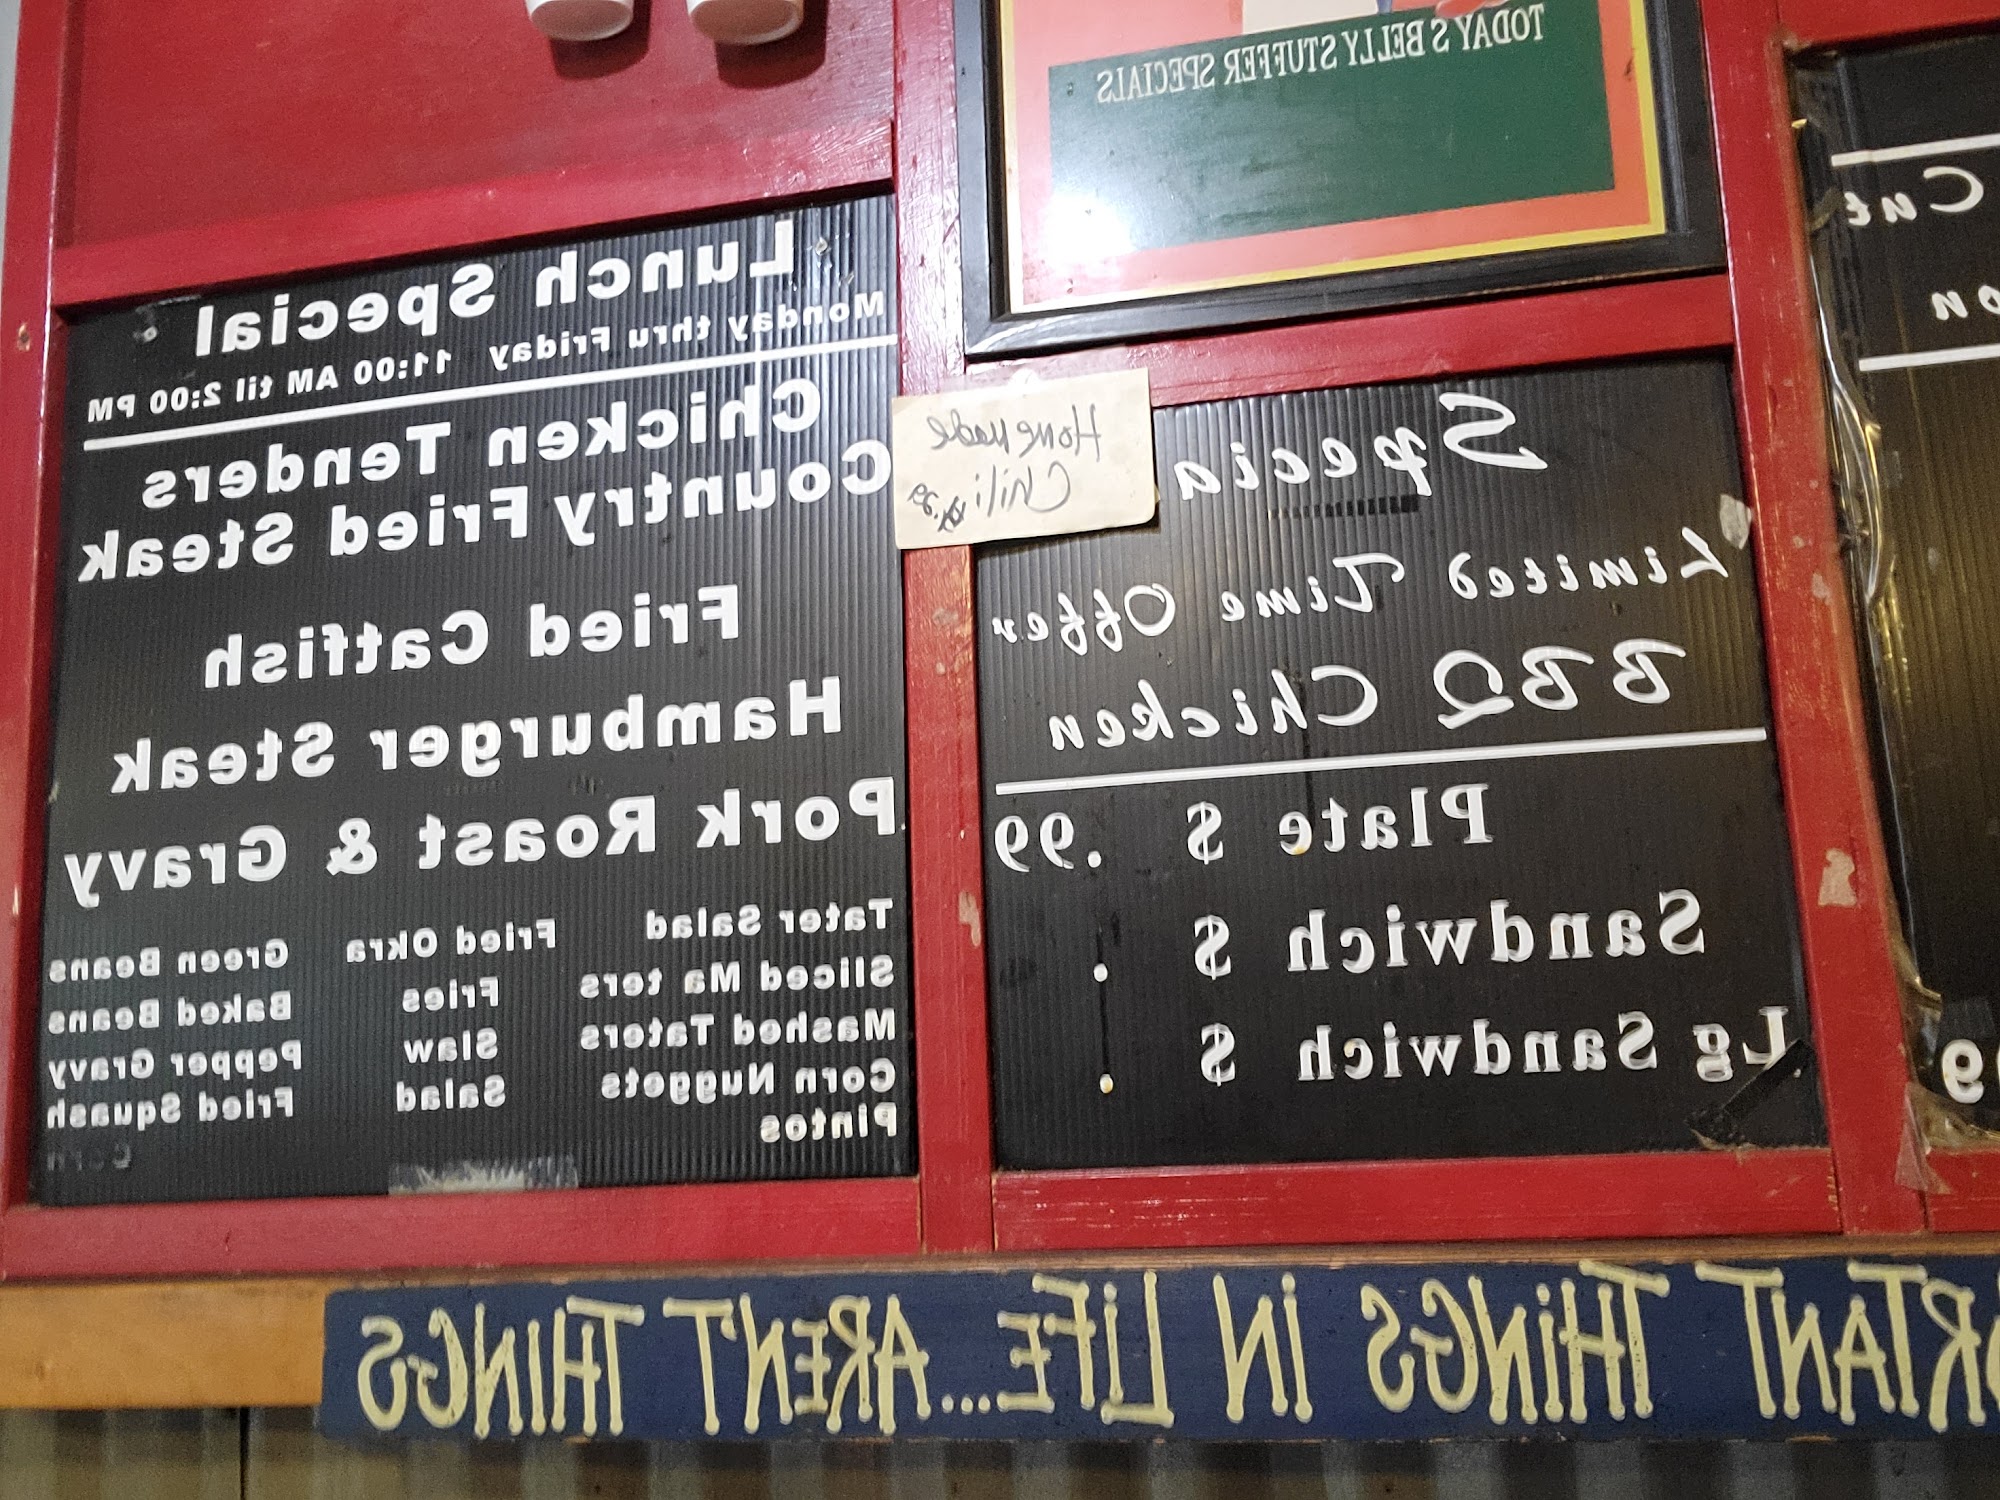 TODAY'S BELLY STUFFER SPECIALS
Lunch Special
Monday thru Friday 11:00 AM til 2:00 PM
Chicken Tenders
Country Fried Steak
Fried Catfish
Hamburger Steak
Pork Roast & Gravy
Tater Salad Fried Okra Green Beans
Sliced Ma ters Fries Baked Beans
Mashed Taters Slaw Pepper Gravy
Corn Nuggets Salad Fried Squash
Pintos Corn
Homemade
Chili
Specia
Limited Time Offer
BBQ Chicken
Plate $ .99
Sandwich $ .
Lg Sandwich $ .
Cut
on
9
ORTANT THINGS IN LIFE...AREN'T THINGS